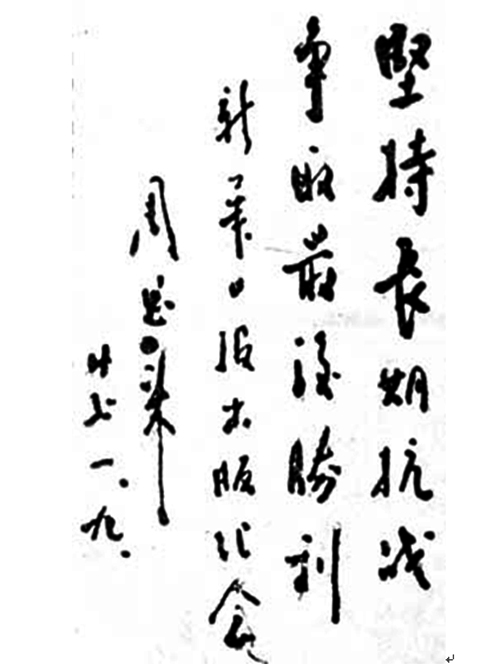 堅持長期抗战
争取最後勝利
新華日报出版纪念
周恩来
廿七、一、九、